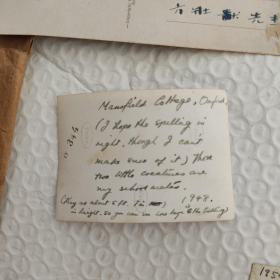 Mansfield Cottage, Oxford.
(I hope the spelling is
right, though I can't
make sure of it) These
two little creatures are
my schoolmates.
1948.
(they are about 5 ft. 7 in
in height. so you can see how huge is the building)
195